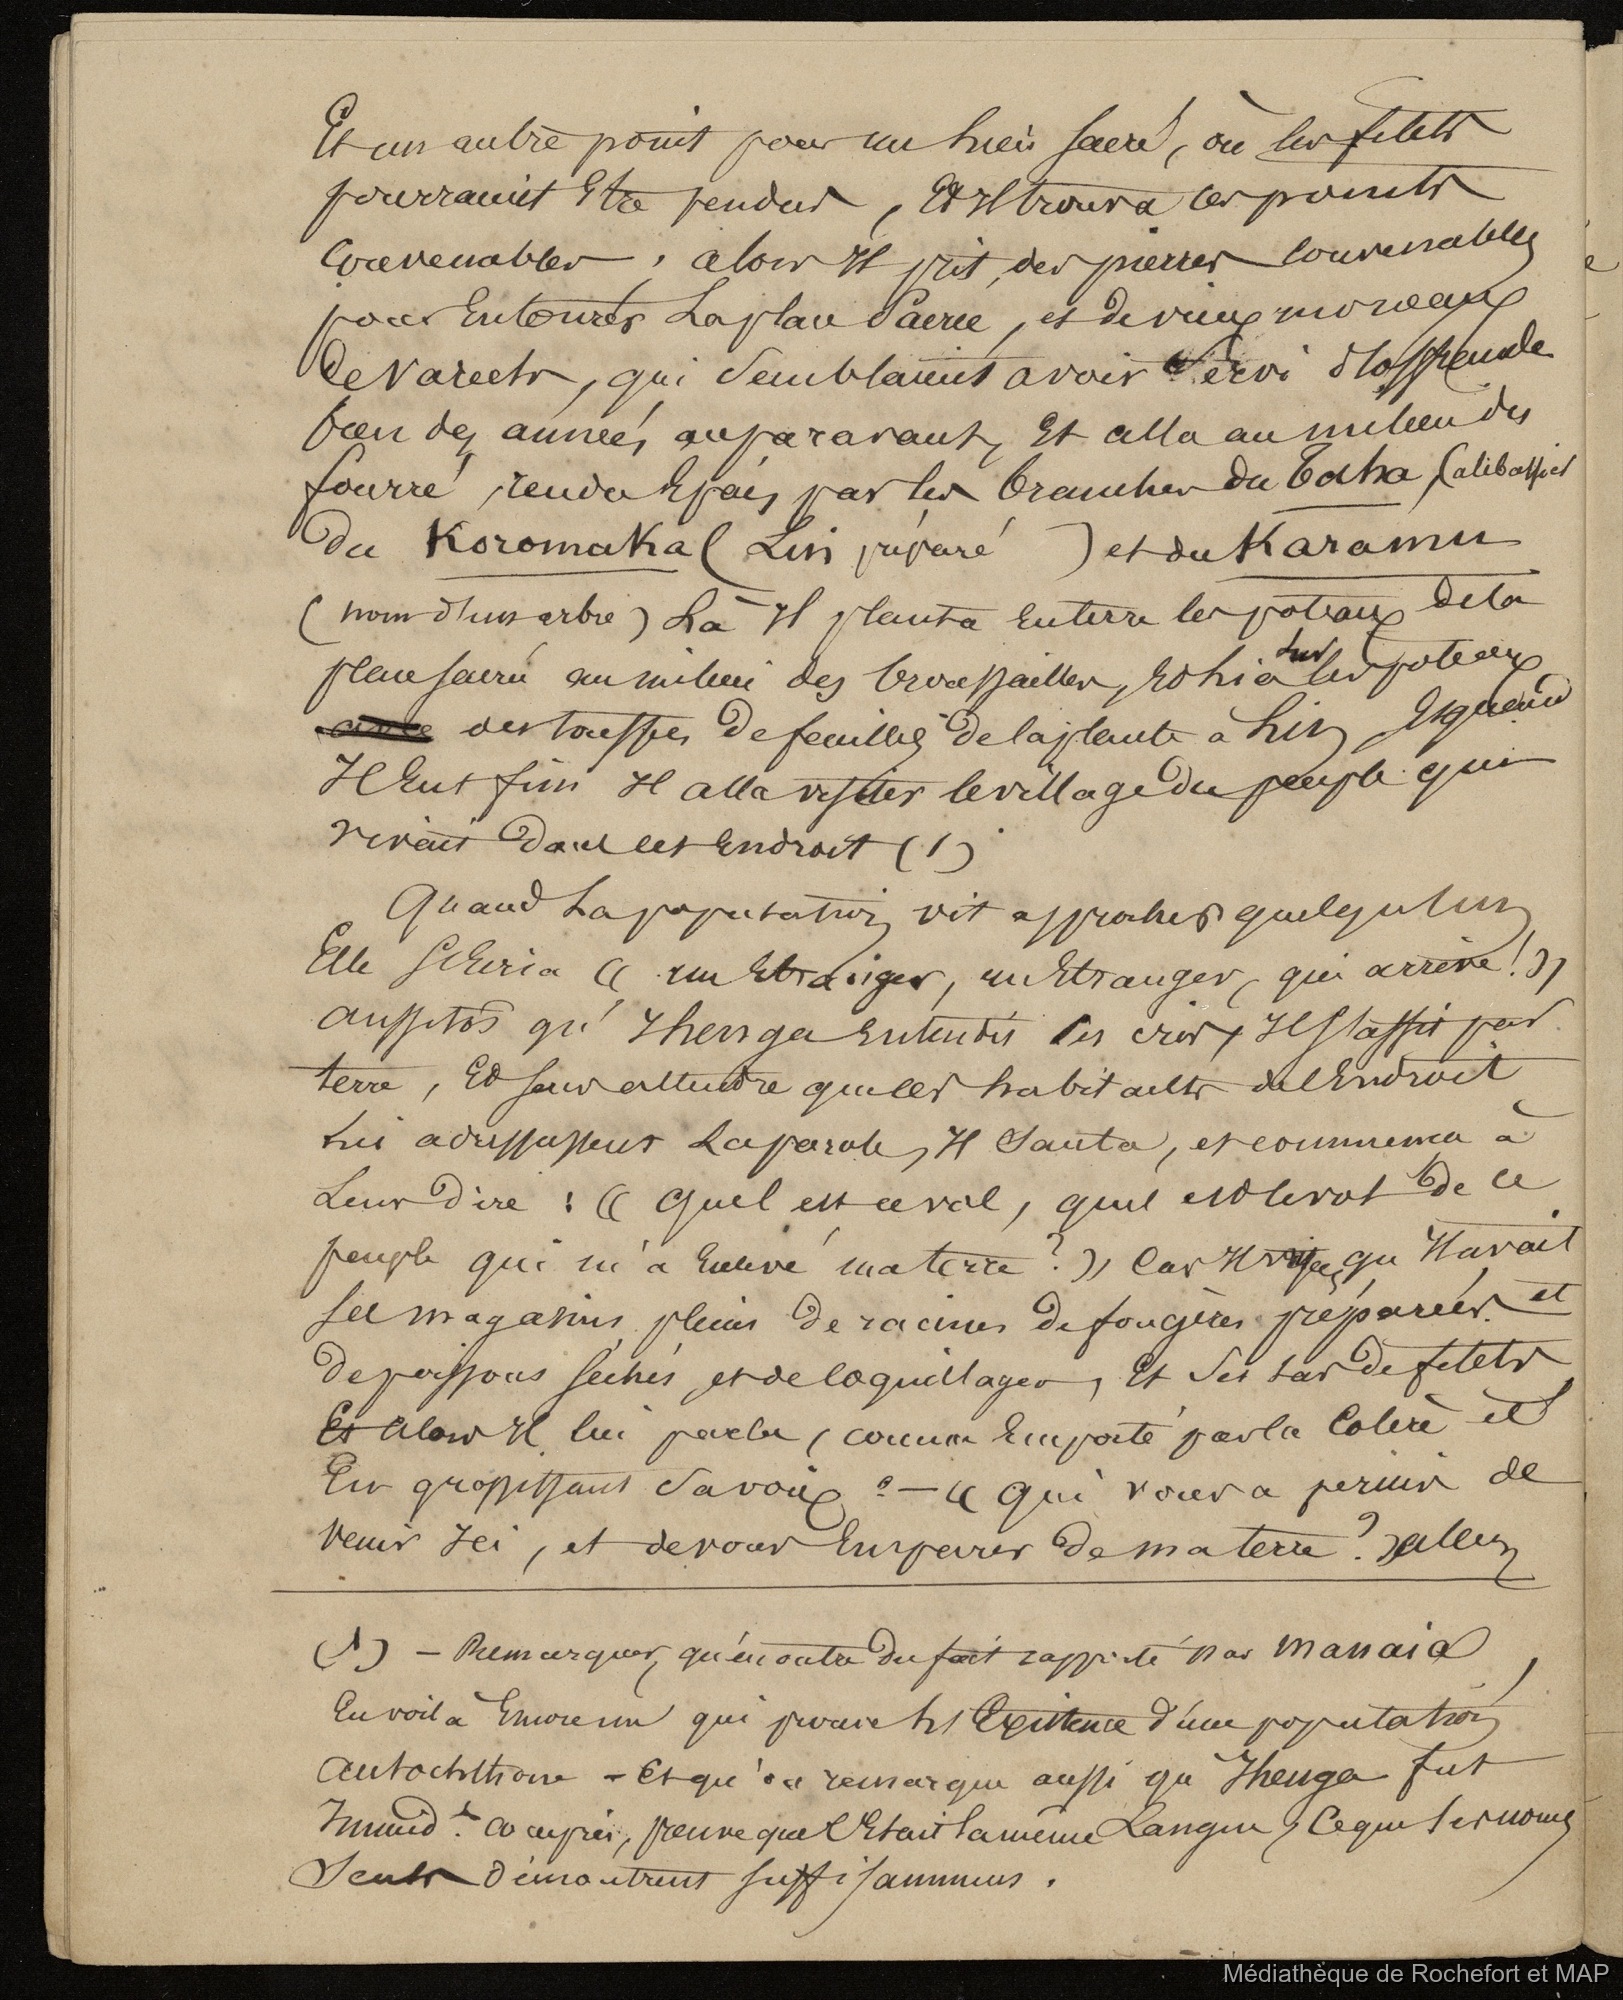 Et un autre point pour un lieu sacré, où les filets
pourraient Etre pendus, Et Il trouva ces points
Convenables, alors Il prit des pierres convenables
pour Entourer La place Sacrée, et de vieux morceaux
de varechs, qui Semblaient avoir Servi d'offrande
bien des années auparavant, Et alla au milieu des
fourré, rendu Epais par les branches du Taha (alibassier
du Koromaka (Lin préparé) et du Karamu
(nom d'un arbre) Là Il planta en terre les poteaux de la
place sacrée au milieu des broussailles, Et lia sur les poteaux
des touffes De feuilles de la plante à Lin, Et quand
Il Eut fini Il alla visiter le village Du peuple qui
vivait Dans cet Endroit (1)
Quand La population vit approcher quelqu'un,
Elle s'Ecria (( un Etranger, un Etranger, qui arrive! ))
aussitôt qu'Ihenga Entendit ces cris, Il s'assit par
terre, Et sans attendre que les habitants de l'Endroit
Lui adressassent La parole, Il Sauta, et commença à
Leur Dire : (( Quel est ce vol, quel est le vol De ce
peuple qui m'a Enlevé ma terre ? )) Car Il vit qu'Il avait
ses magasins pleins De racines de fougères préparées et
De poissons séchés et de coquillages, Et Ses tas De filets
Et alors Il lui parla, comme Emporté par la Colère et
En grossissant Sa voix : — (( Qui vous a permis de
venir Ici, et de vous Emparer De ma terre ? )) allez
(1) — Remarquer, qu'en outre Du fait rapporté par Manaia,
En voilà Encore un qui prouve l'Existence d'une population
autochthone — Et qu'on remarque aussi qu'Ihenga fut
Immédt. compris, preuve que c'Etait la même Langue, Ce que les noms
Seuls Démontrent suffisamment.